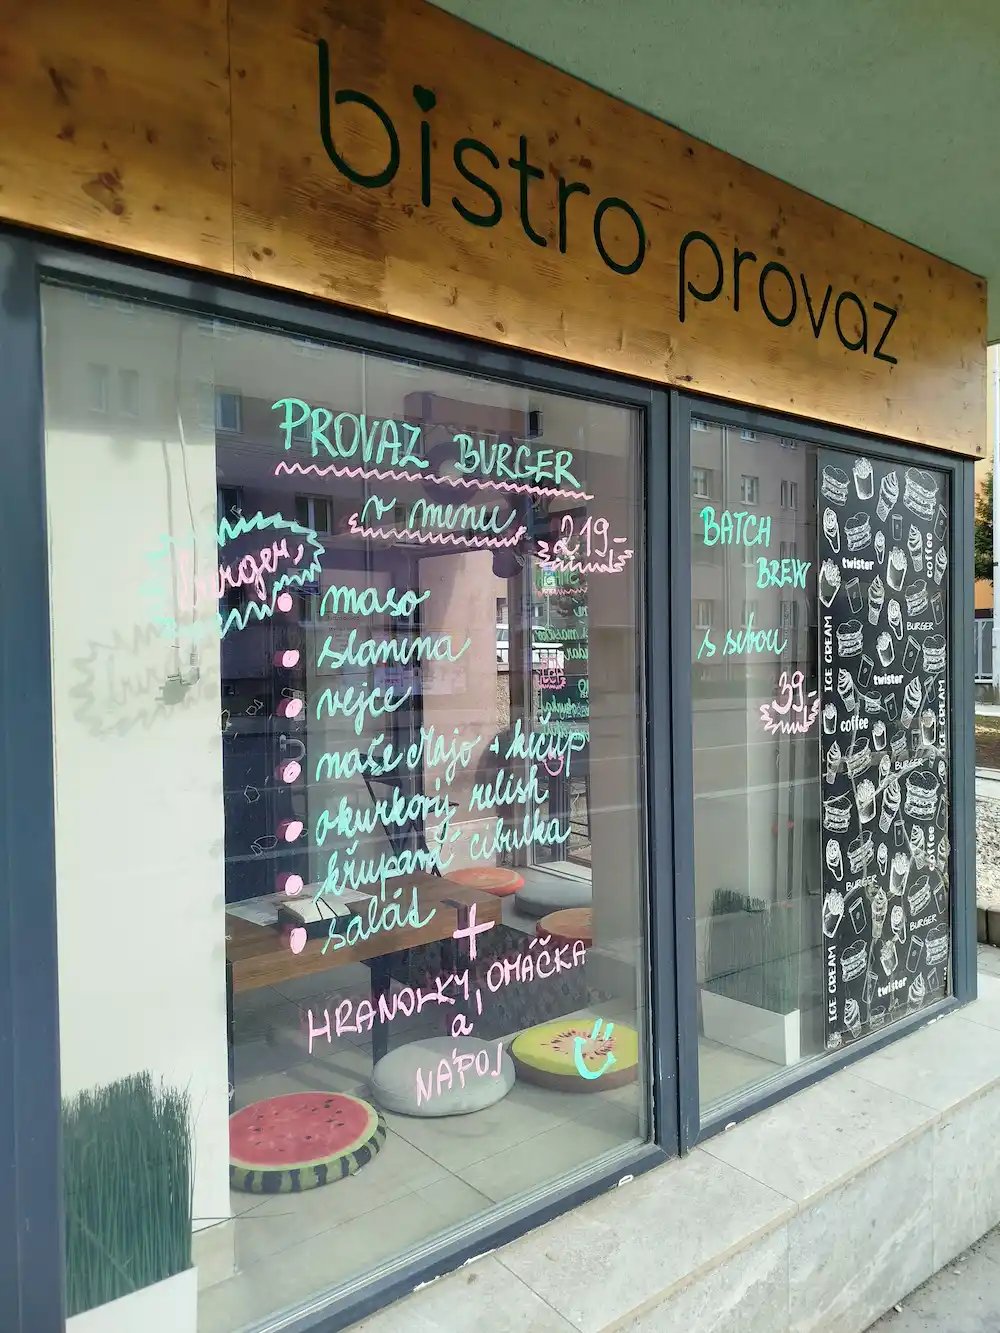 bistro provaz
PROVAZ BURGER
v menu
219,-
burger,
maso
slanina
vejce
naše Majo + kečup
okurkový relish
křupavá cibulka
salát
+
HRANOLKY, OMÁČKA
a
NÁPOJ
BATCH
BREW
s sebou
39,-
twister
coffee
BURGER
ICE CREAM
twister
coffee
ICE CREAM
BURGER
coffee
BURGER
BURGER
ICE CREAM
twister